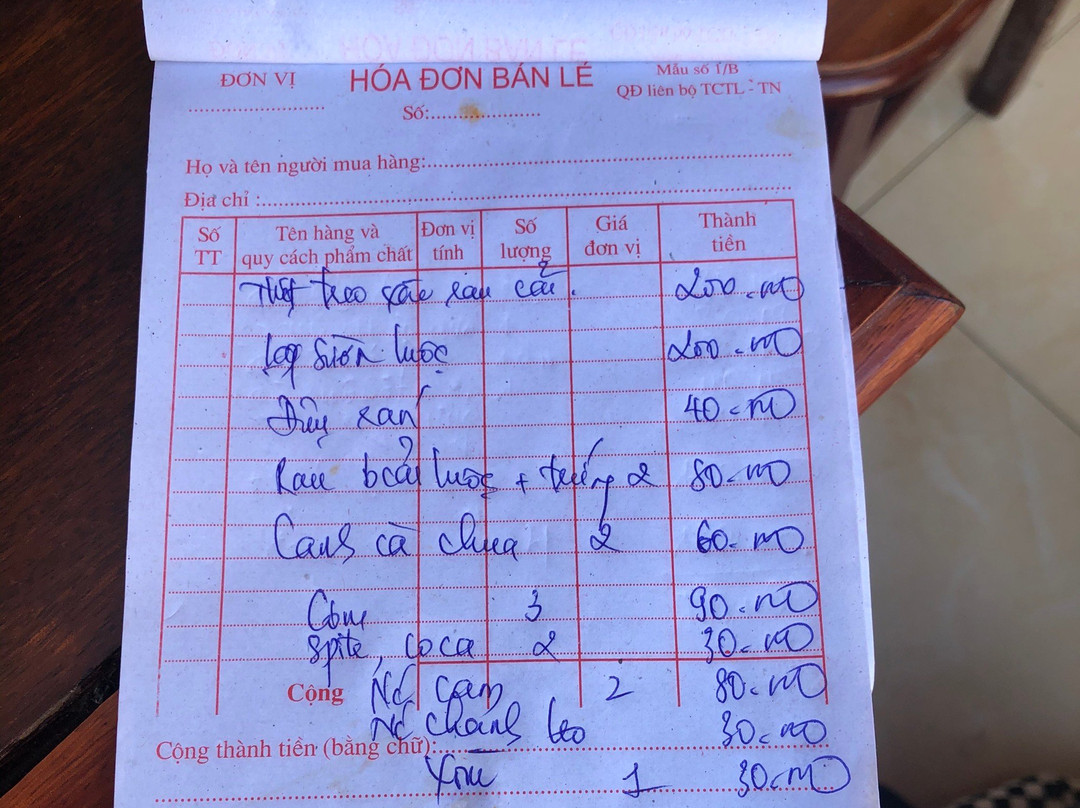 ĐƠN VỊ HÓA ĐƠN BÁN LẺ Mẫu số 1/B
Số: QĐ liên bộ TCTL - TN
Họ và tên người mua hàng:
Địa chỉ :
Số TT Tên hàng và quy cách phẩm chất Đơn vị tính Số lượng Giá đơn vị Thành tiền
treo xào rau cải. 200.
sườn luộc 200.
rán 40.
Rau bcải luộc + trứng 2 80.
Canh cà chua 2 60.
Cơm 3 90.
Spite, coca 2 30.
Cộng Nc cam 2 80.
Nc chanh leo 30.
Cộng thành tiền (bằng chữ):
1 30.